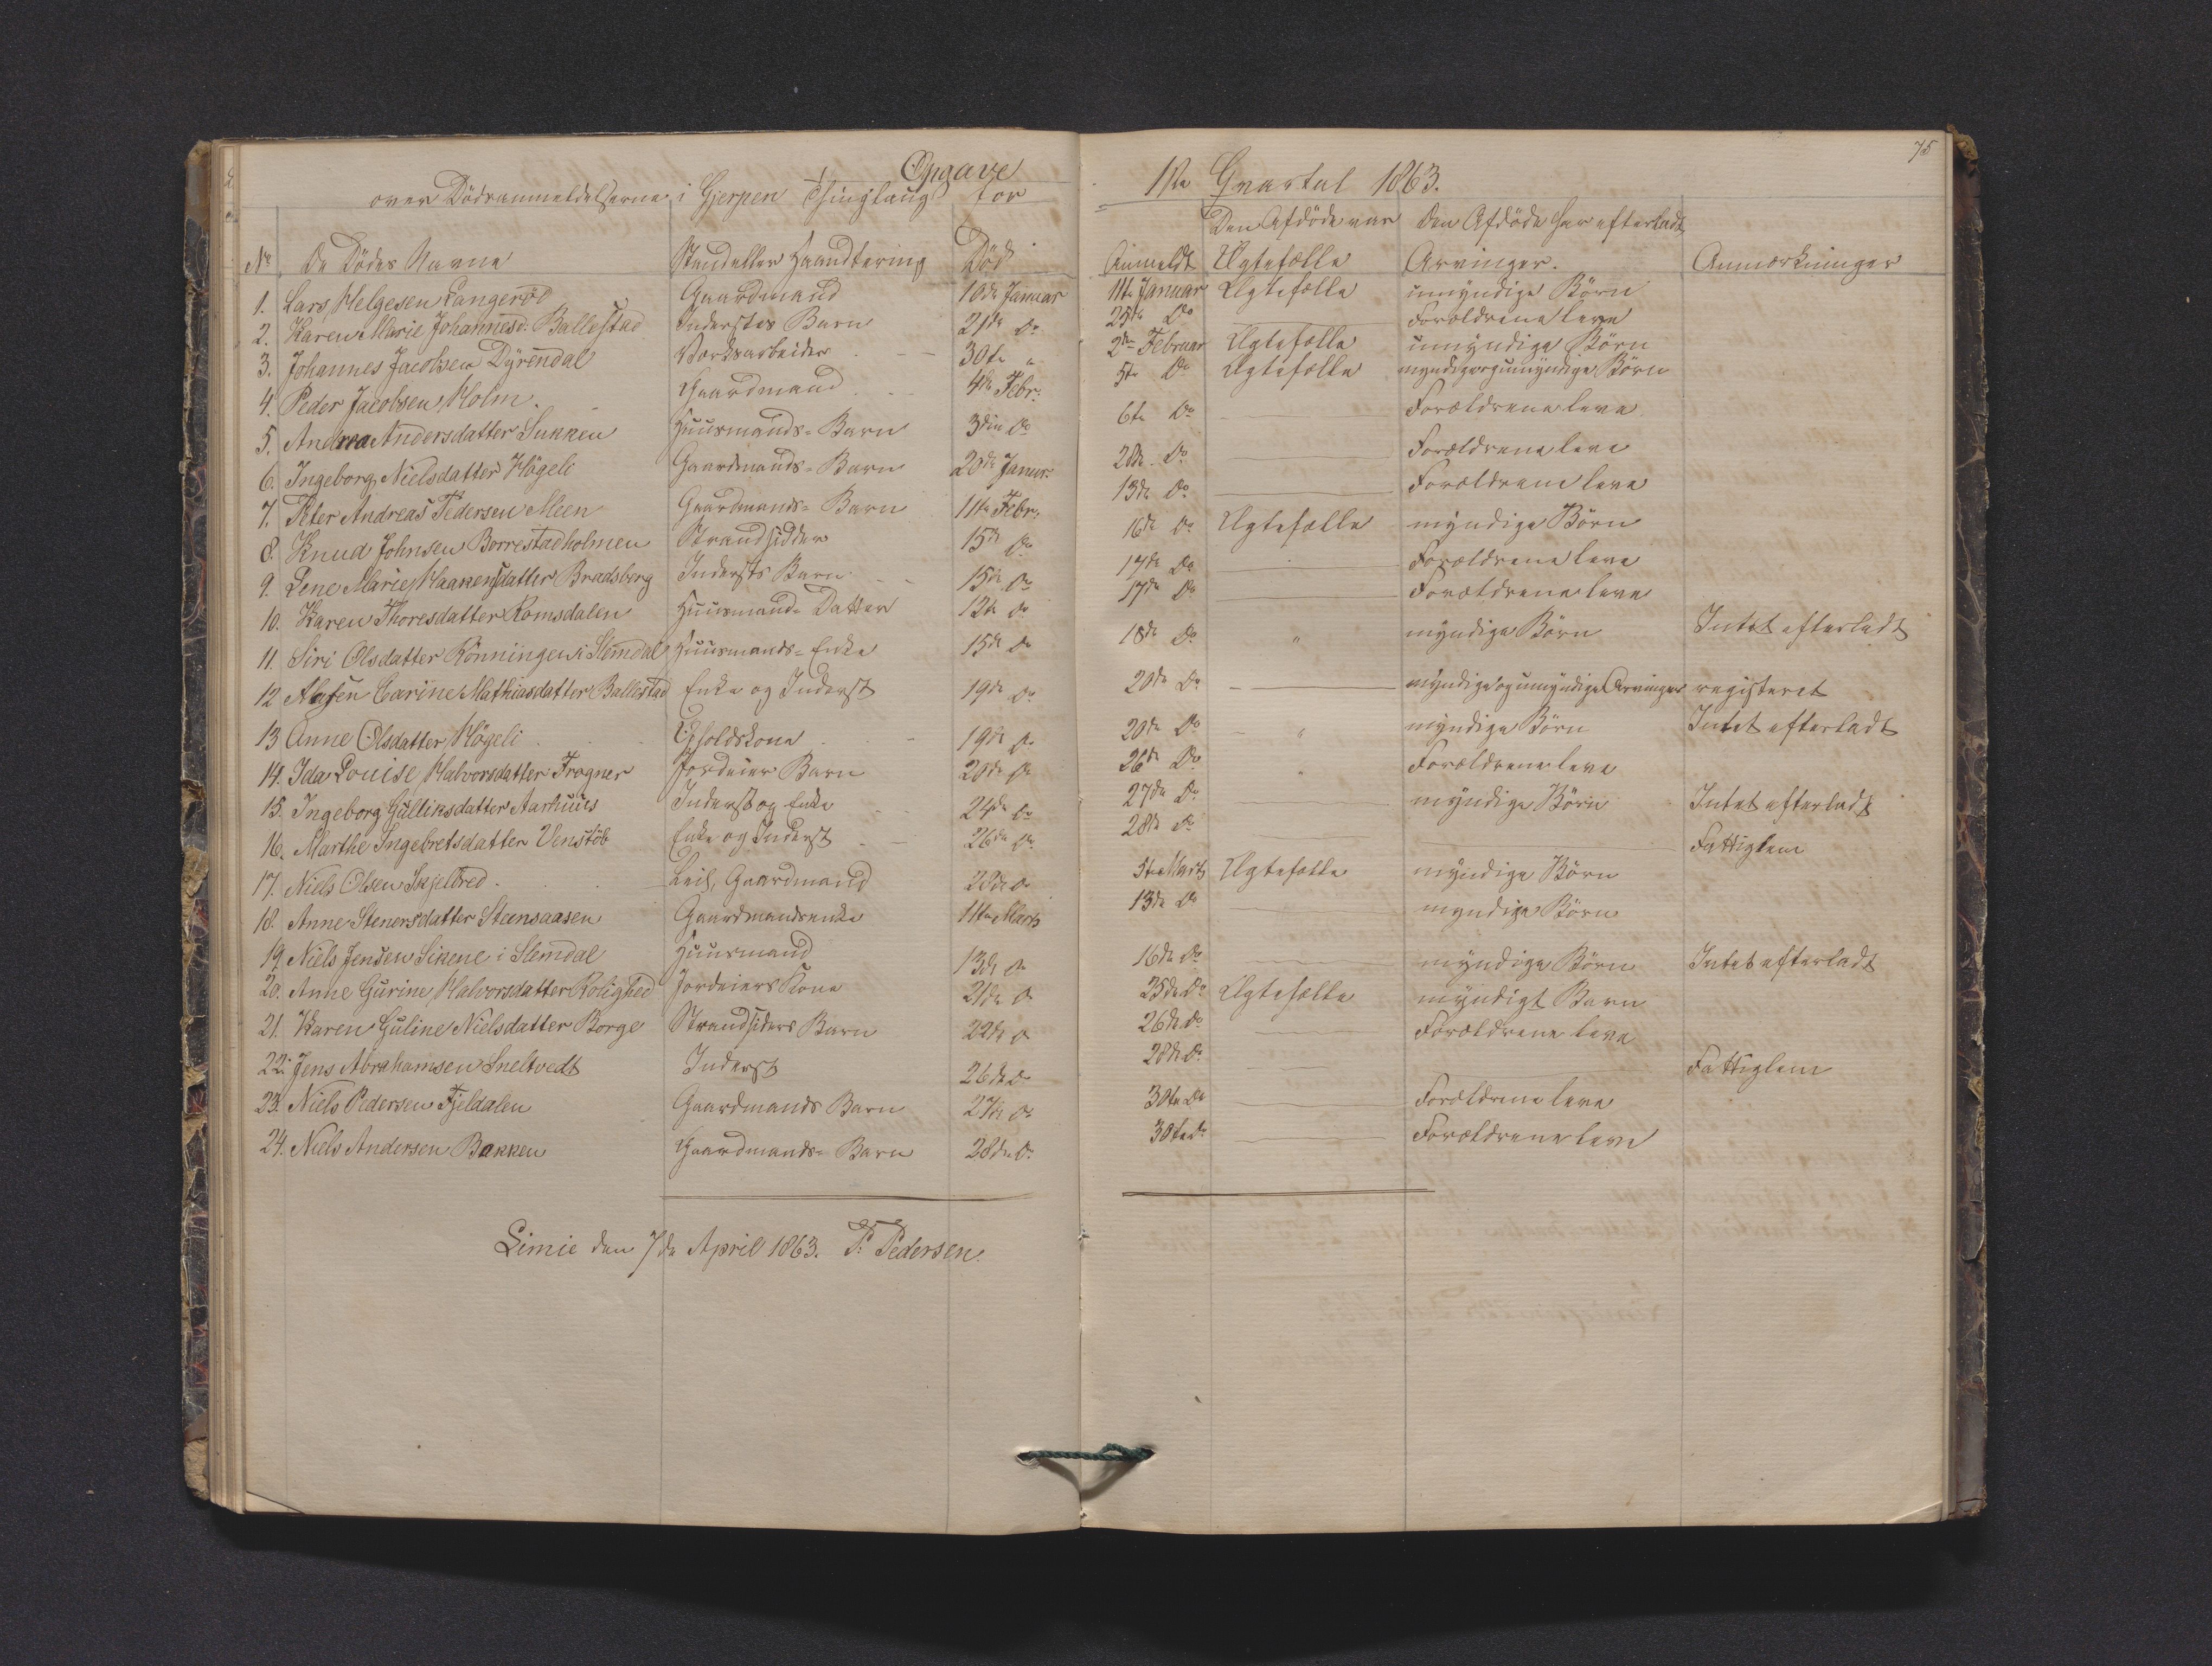 75
Opgave 1ste Qvartal 1863.
over Dödsanmeldelserne i Gjerpen Thinglaug for
Den Afdöde var Den Afdöde har efterladt
No De Dödes Navne Stand eller Haandtering Död Anmeldt Ægtefælle Arvinger. Anmærkninger
1. Lars Helgesen Langeröd Gaardmand 10de Januar 11te Januar Ægtefælle umyndige Börn
2. Karen Marie Johannesd: Ballestad Inderstes Barn 21de Do 25de Do Forældrene leve
3. Johannes Jacobsen Dyrendal Værksarbeider 30te " 2den Februar Ægtefælle umyndige Börn
4. Peder Jacobsen Holm. Gaardmand 4de Febr: 5te Do Ægtefælle myndige og umyndige Börn
5. Andrea Andersdatter Sukken Huusmands-Barn 3die Do 6te Do Forældrene leve
6. Ingeborg Nielsdatter Högeli Gaardmands-Barn 20de Januar 20de Do Forældrene leve
7. Peter Andreas Pedersen Meen Gaardmands-Barn 11te Febr: 13de Do Forældrene leve
8. Knud Johnsen Borrestadholmen Strandsidder 15de Do 16de Do Ægtefælle myndige Börn
9. Lene Marie Haakensdatter BradsbergIndersts Barn 15de Do 17de Do Forældrene leve
10. Karen Thoresdatter Romsdalen Huusmands Datter 12te Do 17de Do Forældrene leve
11. Siri Olsdatter Rönningen i Slemdal Huusmands-Enke 15de Do 18de Do " myndige Börn Intet efterladt
12 Maren Carine Mathiasdatter Ballestad Enke og Inderst 19de Do 20de Do myndige og umyndige Arvinger registeret
13 Anne Olsdatter Högeli Opholdskone 19de Do 20de Do " myndige Börn Intet efterladt
14. Ida Louise Halvorsdatter Frogner Jordeier Barn 20de Do 26de Do " Forældrene leve
15. Ingeborg Gulliksdatter Aarhuus Inderst og Enke 24de Do 27de Do myndige Börn Intet efterladt
16. Marthe Ingebretsdatter Venstöb Enke og Inderst 26de Do 28de Do Fattiglem
17. Niels Olsen Skjelbred. Leil. Gaardmand 28de Do 5te Marts Ægtefælle myndige Börn
18. Anne Stenersdatter Steensaasen Gaardmandsenke 11te Marts 13de Do myndige Börn
19 Niels Jensen Sikene i Slemdal Huusmand 13de Do 16de Do myndige Börn Intet efterladt
20. Anne Gurine Halvorsdatter Rolighed Jordeiers Kone 21de Do 25de Do Ægtefælle myndigt Barn
21. Karen Guline Nielsdatter Borge Strandsiders Barn 22de Do 26de Do Forældrene leve
22. Jens Abrahamsen Sneltvedt Inderst 26de Do 28de Do Fattiglem
23. Niels Pedersen Fjeldalen Gaardmands Barn 27de Do 30te Do Forældrene leve
24. Niels Andersen Bakken Gaardmands-Barn 28de Do 30te Do Forældrene leve
Limie den 7de April 1863. P. Pedersen.